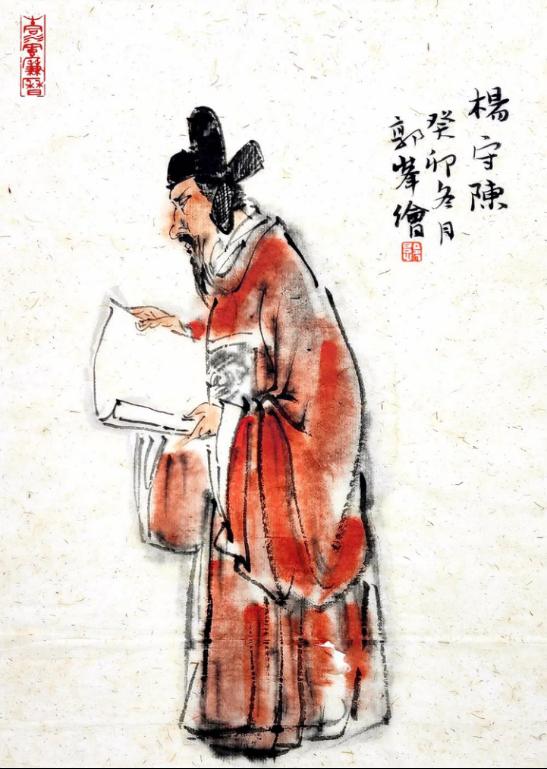 楊守陳
癸卯冬月
郭峯繪